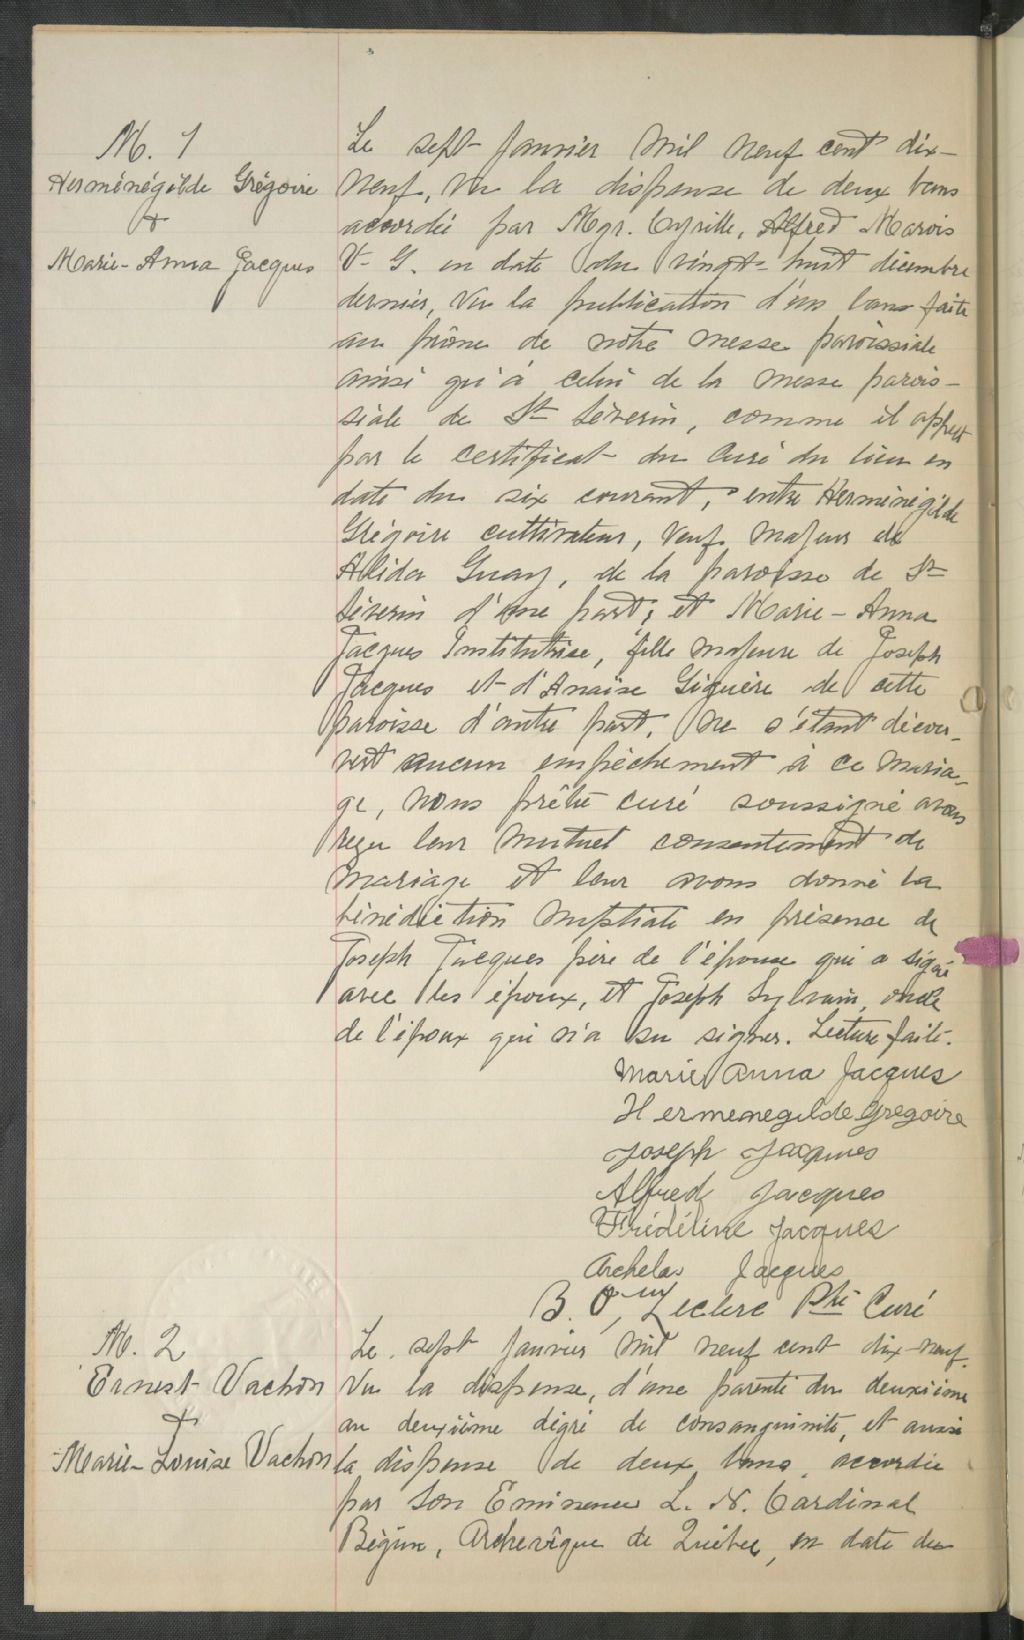 M. 1
Herménégilde Grégoire
+
Marie-Anna Jacques
Le sept janvier mil neuf cent dix-
neuf, vu la dispense de deux bans
accordée par Mgr. Cyrille, Alfred Marois
V. G. en date du vingt-huit décembre
dernier, vu la publication d'un bans faite
au prône de notre messe paroissiale
ainsi qu'à celui de la messe parois-
siale de St Séverin, comme il appert
par le certificat du curé du lieu en
date du six courant, entre Herménégilde
Grégoire cultivateur, veuf majeur de
Alida Guay, de la paroisse de St
Séverin d'une part; et Marie-Anna
Jacques Institutrice, fille majeure de Joseph
Jacques et d'Anaïse Giguère de cette
paroisse d'autre part, ne s'étant décou-
vert aucun empêchement à ce maria-
ge, nous prêtre curé soussigné avons
reçu leur mutuel consentement de
mariage et leur avons donné la
bénédiction nuptiale en présence de
Joseph Jacques père de l'épouse qui a signé
avec les époux, et Joseph Sylvain, oncle
de l'époux qui n'a su signer. Lecture faite.
Marie Anna Jacques
Hermenegilde Gregoire
Joseph Jacques
Alfred Jacques
Frédéline Jacques
Archelas Jacques
B. Leclerc Ptre Curé
M. 2
Ernest Vachon
+
Marie-Louise Vachon
Le sept janvier mil neuf cent dix-neuf.
Vu la dispense, d'une parenté du deuxième
au deuxième dégré de consanguinité, et aussi
la dispense de deux bans, accordée
par Son Eminence L. N. Cardinal
Bégin, Archevêque de Québec, en date du